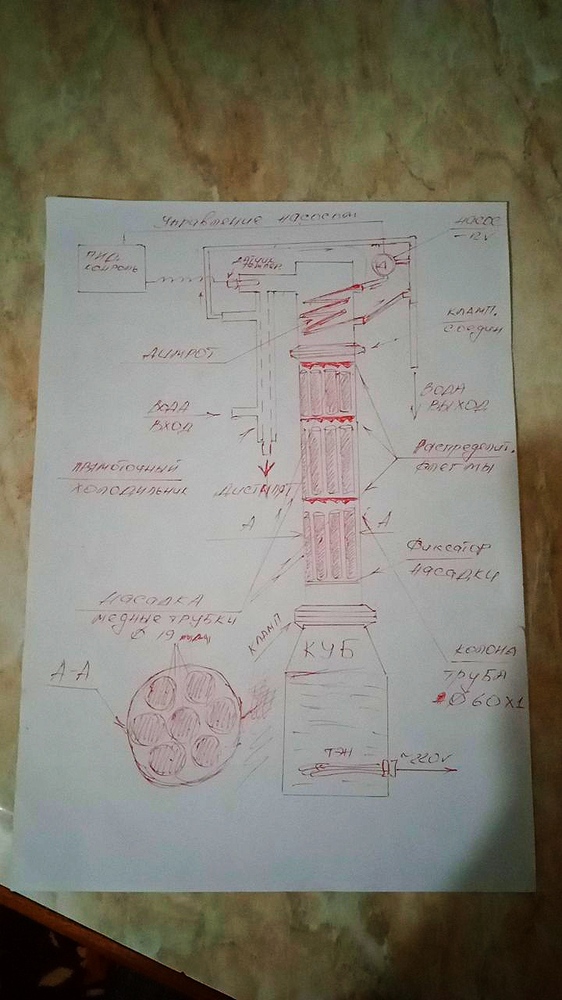 Управление насосом
НАСОС
~12V
ПИД.
КОНТРОЛЬ
ДАТЧИК
ТЕМПЕР.
КЛАМП.
СОЕДИН
ДИМРОТ
ВОДА
ВХОД
ВОДА
ВЫХОД
ПРЯМОТОЧНЫЙ
ХОЛОДИЛЬНИК
ДИСТИЛЯТ
Распределит.
ФЛЕГМЫ
А
А
Фиксатор
НАСАДКИ
НАСАДКА
МЕДНЫЕ ТРУБКИ
Ø 19 мм
КЛАМП
КУБ
КОЛОНА
ТРУБА
Ø 60х1
А-А
ТЭН
~220V